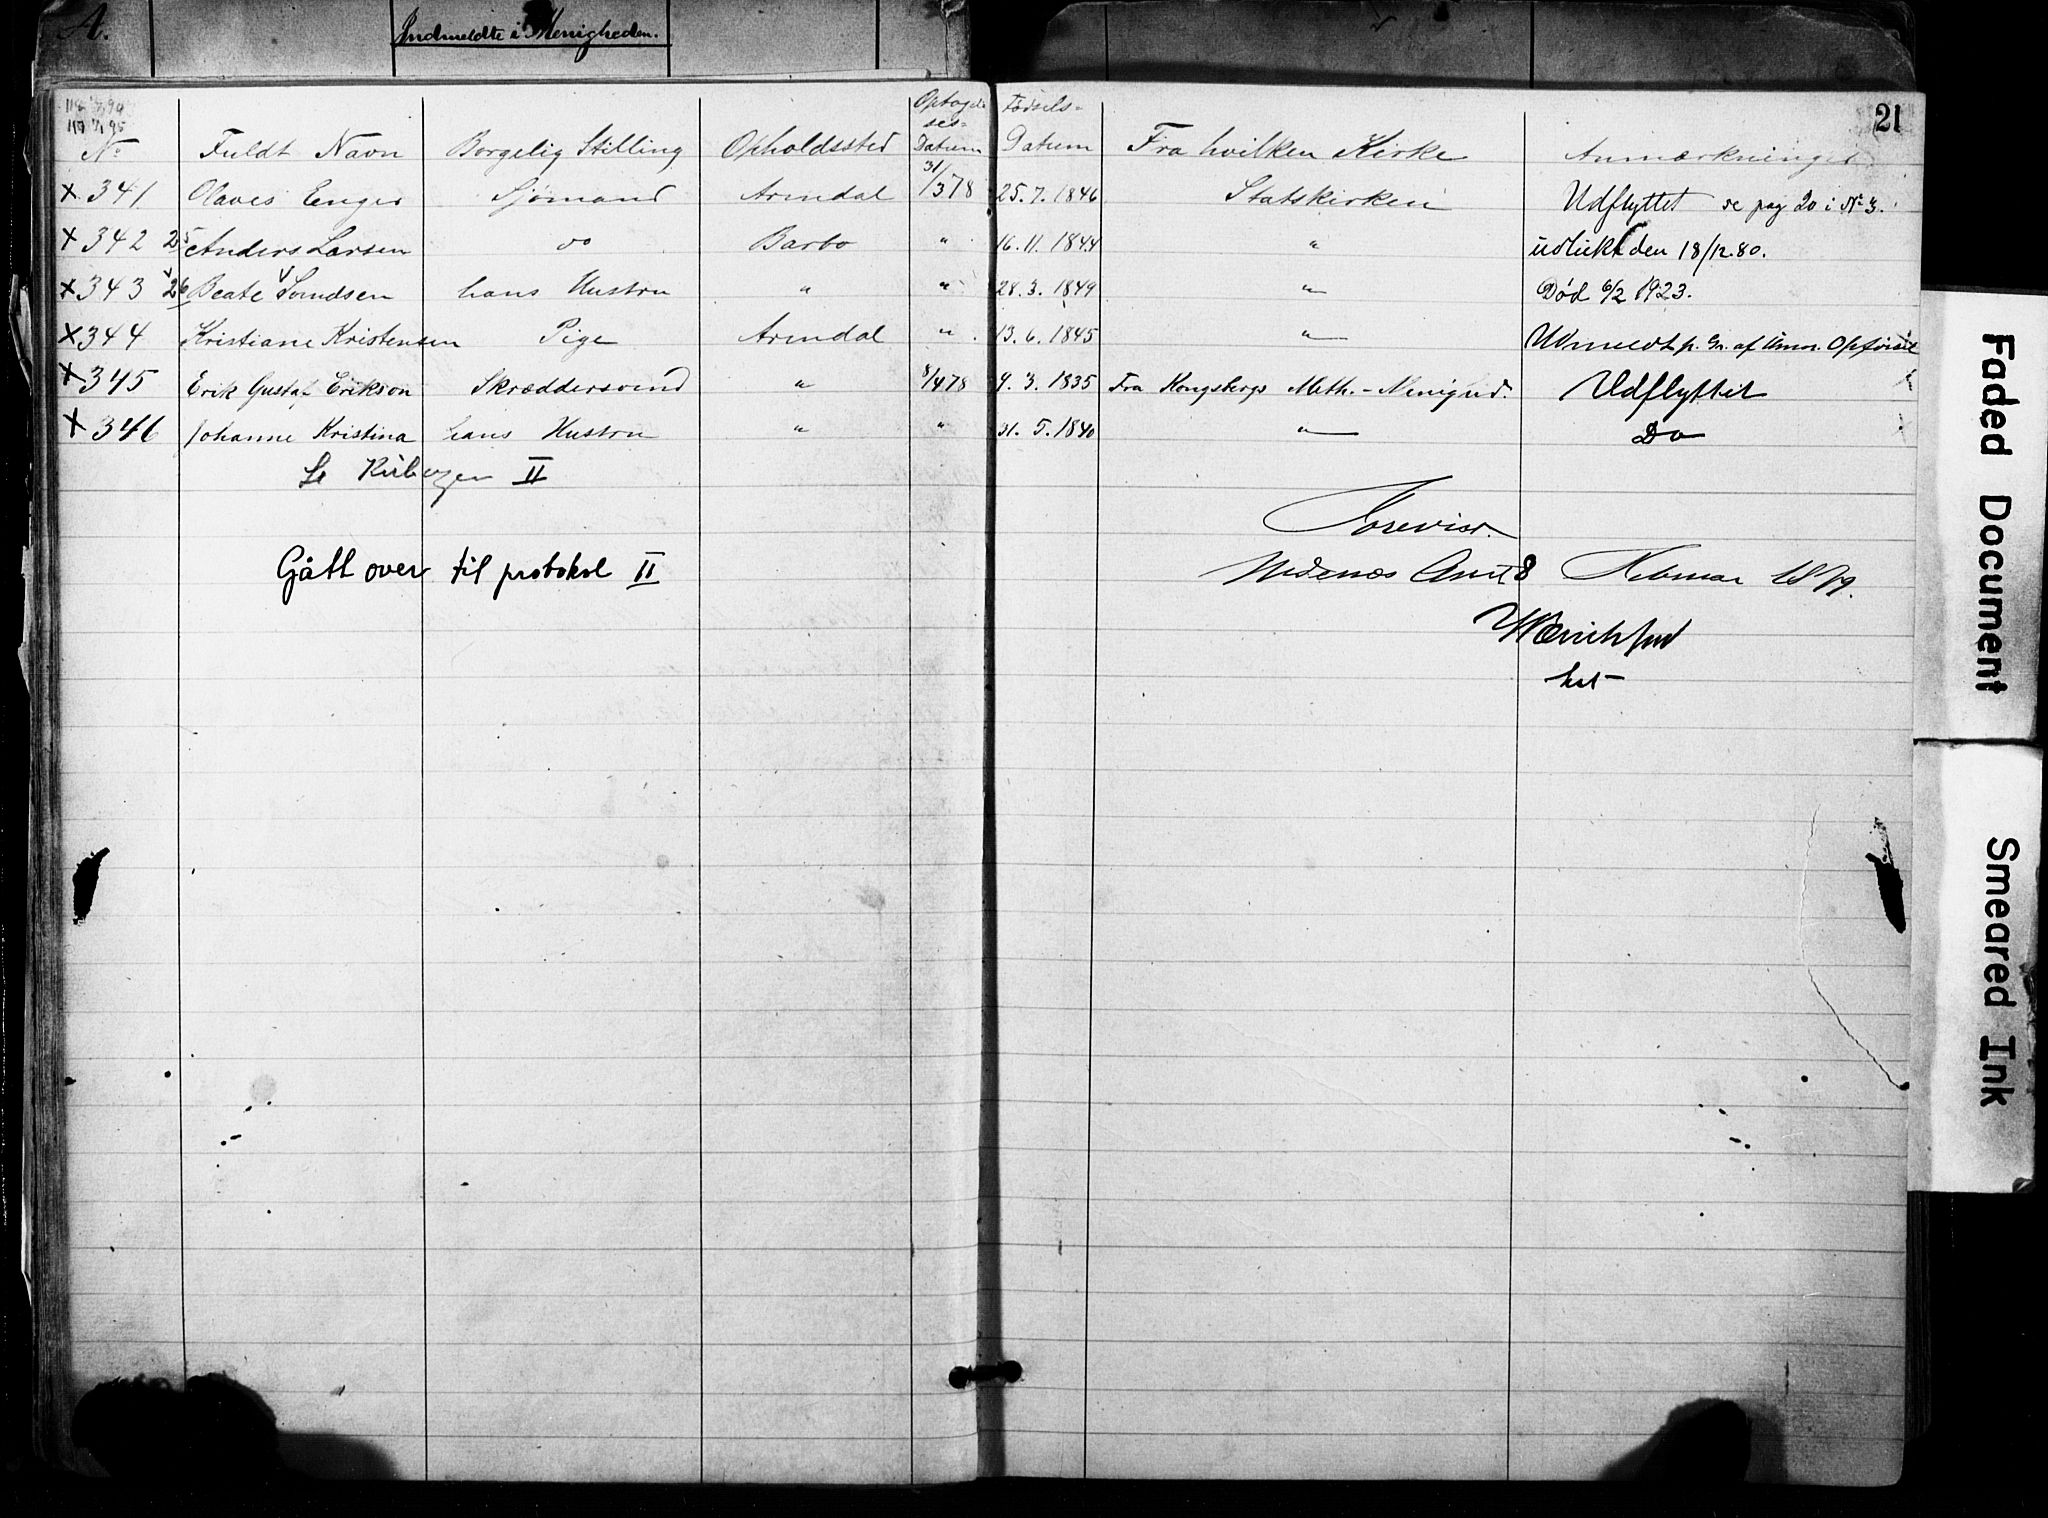 A. Indmeldte i Menigheden.
21
No Fuldt Navn Borgelig Stilling Opholdssted Optagelses-Datum Fødsels-Datum Fra hvilken Kirke Anmærkninger
x 341 Olaves Enger Sjømand Arendal 31/3 78 25.7.1846 Statskirken Udflyttet se pag 20 i No 3.
x 342 25 Anders Larsen do Barbo " 16.11.1844 " udlukt den 18/12.80.
x 343 26 Beate hans Hustru " " 28.3.1849 " Død 6/2 1923.
x 344 Kristiane Kristensen Pige Arendal " 13.6.1845 " Udmeldt p. Gr. af
x 345 Erik Gustaf Erikson Skræddersvend " 8/4 78 9.3.1835 Fra Kongsbergs Meth.-Menighed. Udflyttet
x 346 Johanne Kristina hans Hustru " " 31.5.1840 " Do
Se II
Forevist.
Gått over til protokol II
Nedenæs Amt 8 Februar 1879.
Faded Document
Smeared Ink